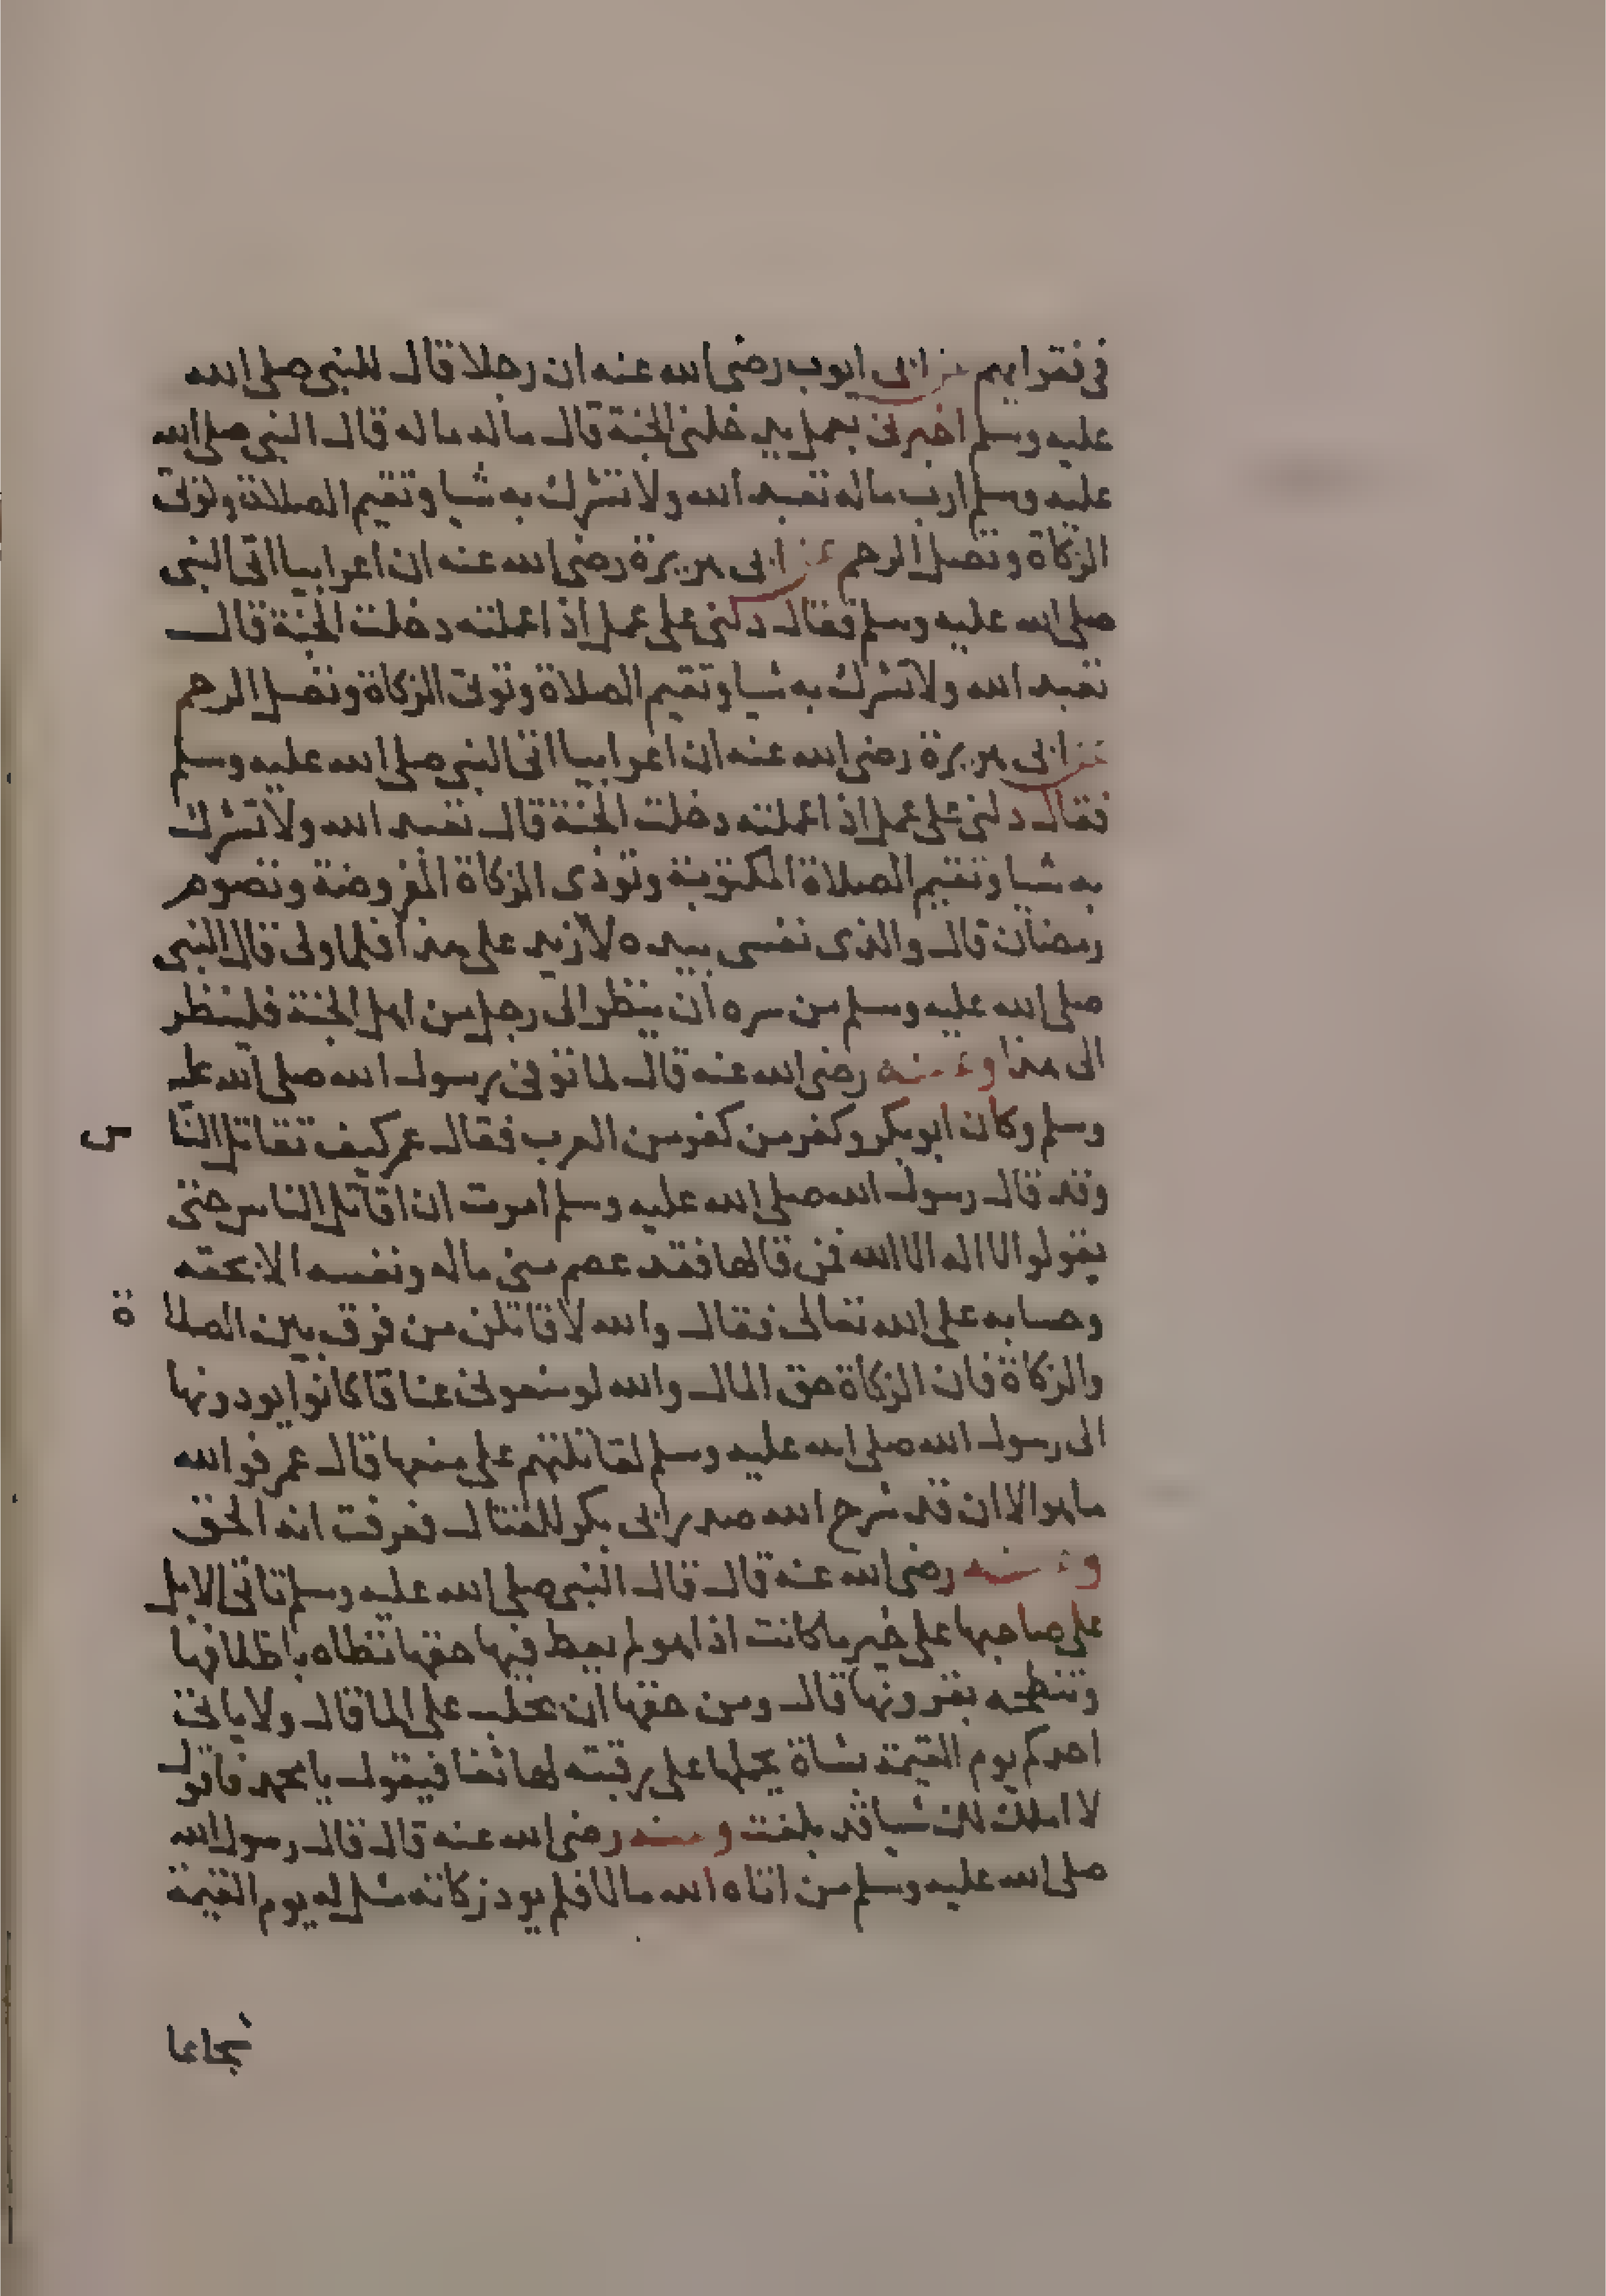 في فقرايهم عن ابي ايوب رضي الله عنه ان رجلا قال للنبي صلى الله
عليه وسلم اخبرني بعمل يدخلني الجنة قال ماله ماله قال النبي صلى الله
عليه وسلم ارب ماله تعبد الله ولا تشرك به شيا وتقيم الصلاة وتوتي
الزكاة وتصل الرحم عن ابي هريرة رضي الله عنه ان اعرابيا اتى النبي
صلى الله عليه وسلم فقال دلني على عمل اذا عملته دخلت الجنة قال
تعبد الله ولا تشرك به شيا وتقيم الصلاة وتوتي الزكاة وتصل الرحم
عن ابي هريرة رضي الله عنه ان اعرابيا اتى النبي صلى الله عليه وسلم
فقال دلني على عمل اذا عملته دخلت الجنة قال تعبد الله ولا تشرك
به شيا وتقيم الصلاة المكتوبة وتوذى الزكاة المفروضة وتصوم
رمضان قال والذى نفسى بيده لا ازيد على هذا فلما ولى قال النبي
صلى الله عليه وسلم من سره ان ينظر الى رجل من اهل الجنة فلينظر
الى هذا وعنه رضي الله عنه قال لما توفى رسول الله صلى الله عليه
وسلم وكان ابو بكر وكفر من كفر من العرب فقال عمر كيف تقاتل الناس
وقد قال رسول الله صلى الله عليه وسلم امرت ان اقاتل الناس حتى
يقولوا لا اله الا الله فمن قالها فقد عصم منى ماله ونفسه الا بحقه
وحسابه على الله تعالى فقال والله لاقاتلن من فرق بين الصلاة
والزكاة فان الزكاة حق المال والله لو منعونى عناقا كانوا يودونها
الى رسول الله صلى الله عليه وسلم لقاتلتهم على منعها قال عمر فوالله
ما هو الا ان قد شرح الله صدر ابى بكر للقتال فعرفت انه الحق
وعنه رضي الله عنه قال قال النبي صلى الله عليه وسلم تاتى الابل
على صاحبها على خير ما كانت اذا هو لم يعط فيها حقها تطاه باظلافها
وتنطحه بقرونها قال ومن حقها ان تحلب على الما قال ولا ياتى
احدكم يوم القيمة بشاة يحملها على رقبته لها ثغا فيقول يا محمد فاقول
لا املك لك شيا قد بلغت وعنه رضي الله عنه قال قال رسول الله
صلى الله عليه وسلم من اتاه الله مالا فلم يود زكاته مثل له يوم القيمة
شجاعا